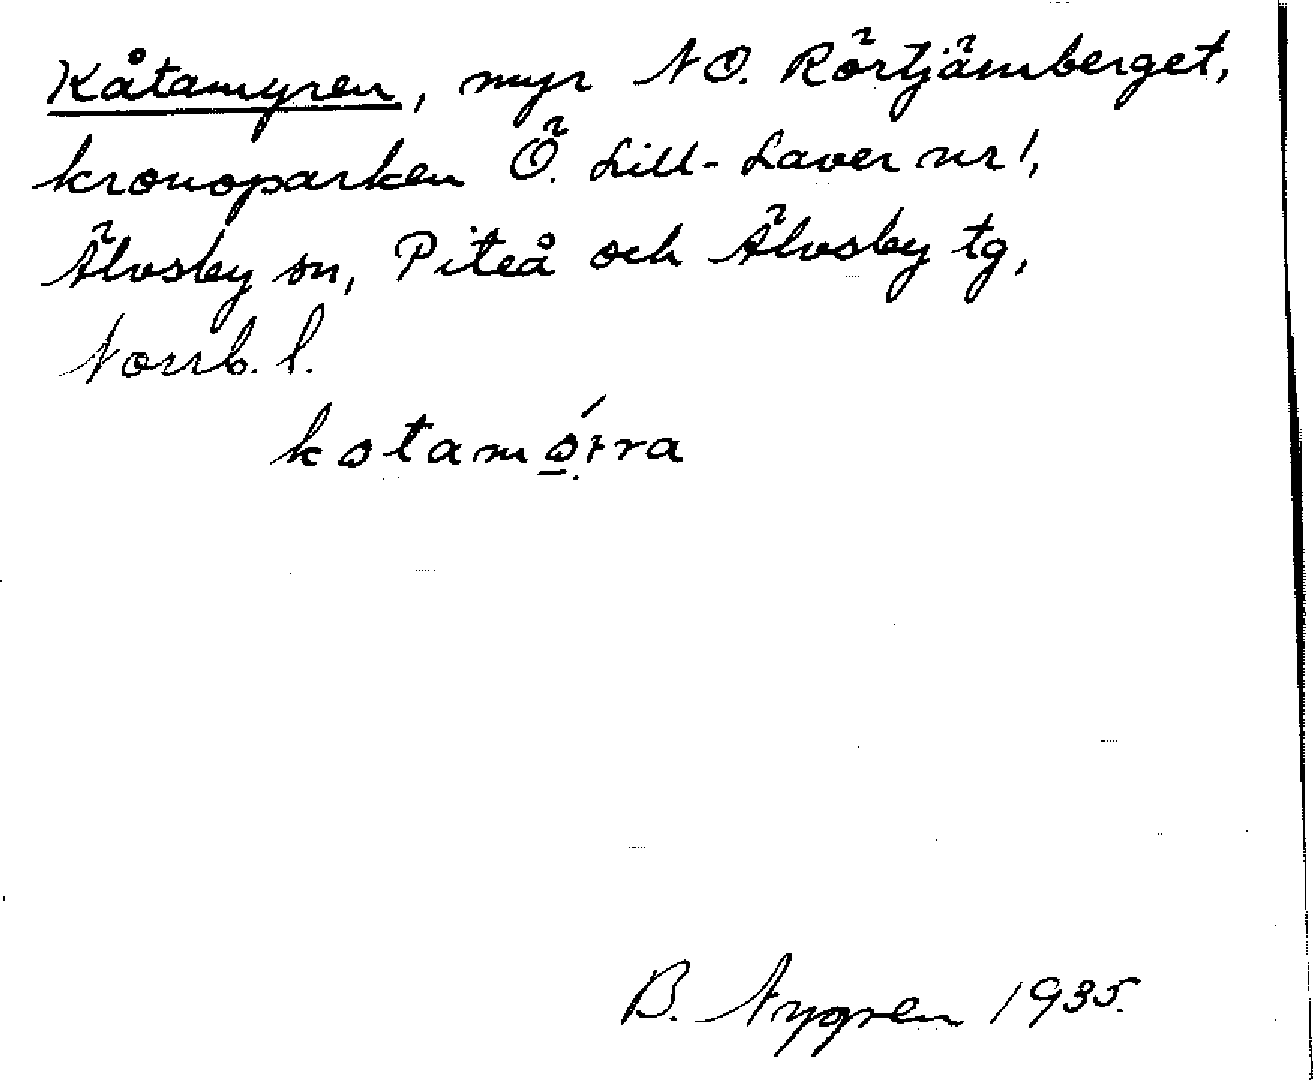 Kåtamyren, myr NO. Rörtjärnberget,
kronoparken Ö. Lill-Laver nr 1,
Älvsby sn, Piteå och Älvsby tg,
Norrb. l.
B. Nygren 1935.